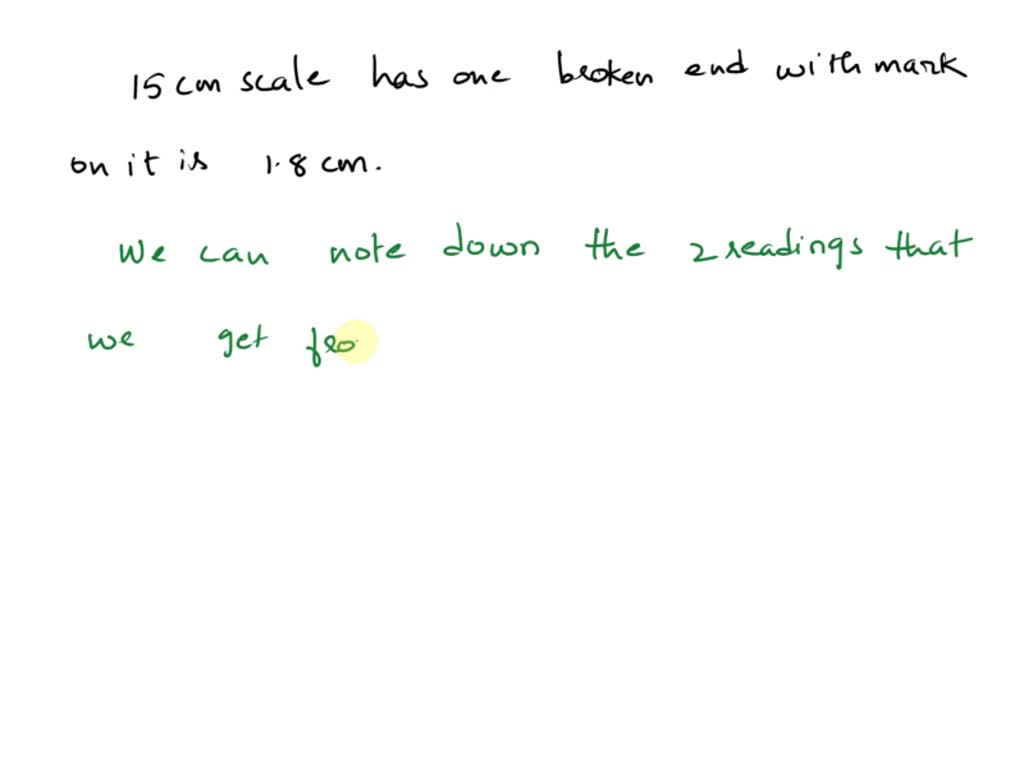 15 cm scale has one broken end with mark
on it is 1.8 cm.
we can note down the 2 readings that
we get fro